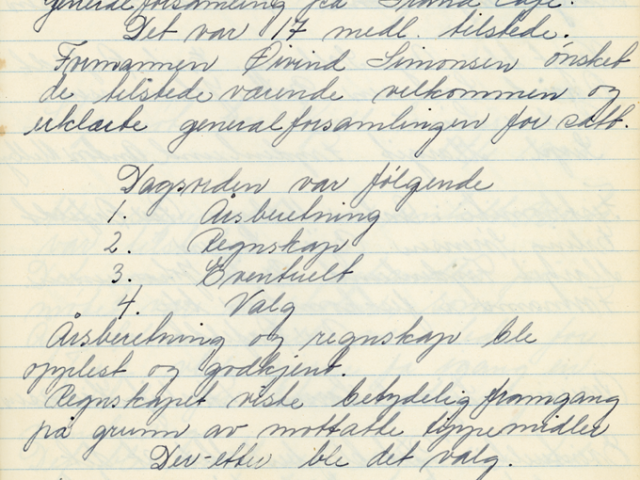 generalforsamling på Grand Café.
Det var 17 medl. tilstede.
Formannen Øivind Simonsen ønsket
de tilstedeværende velkommen og
erklærte generalforsamlingen for satt.
Dagsorden var følgende
1. Årsberetning
2. Regnskap
3. Eventuelt
4. Valg
Årsberetning og regnskap ble
opplest og godkjent.
Regnskapet viste betydelig framgang
på grunn av mottatte tippemidler
Der-etter ble det valg.